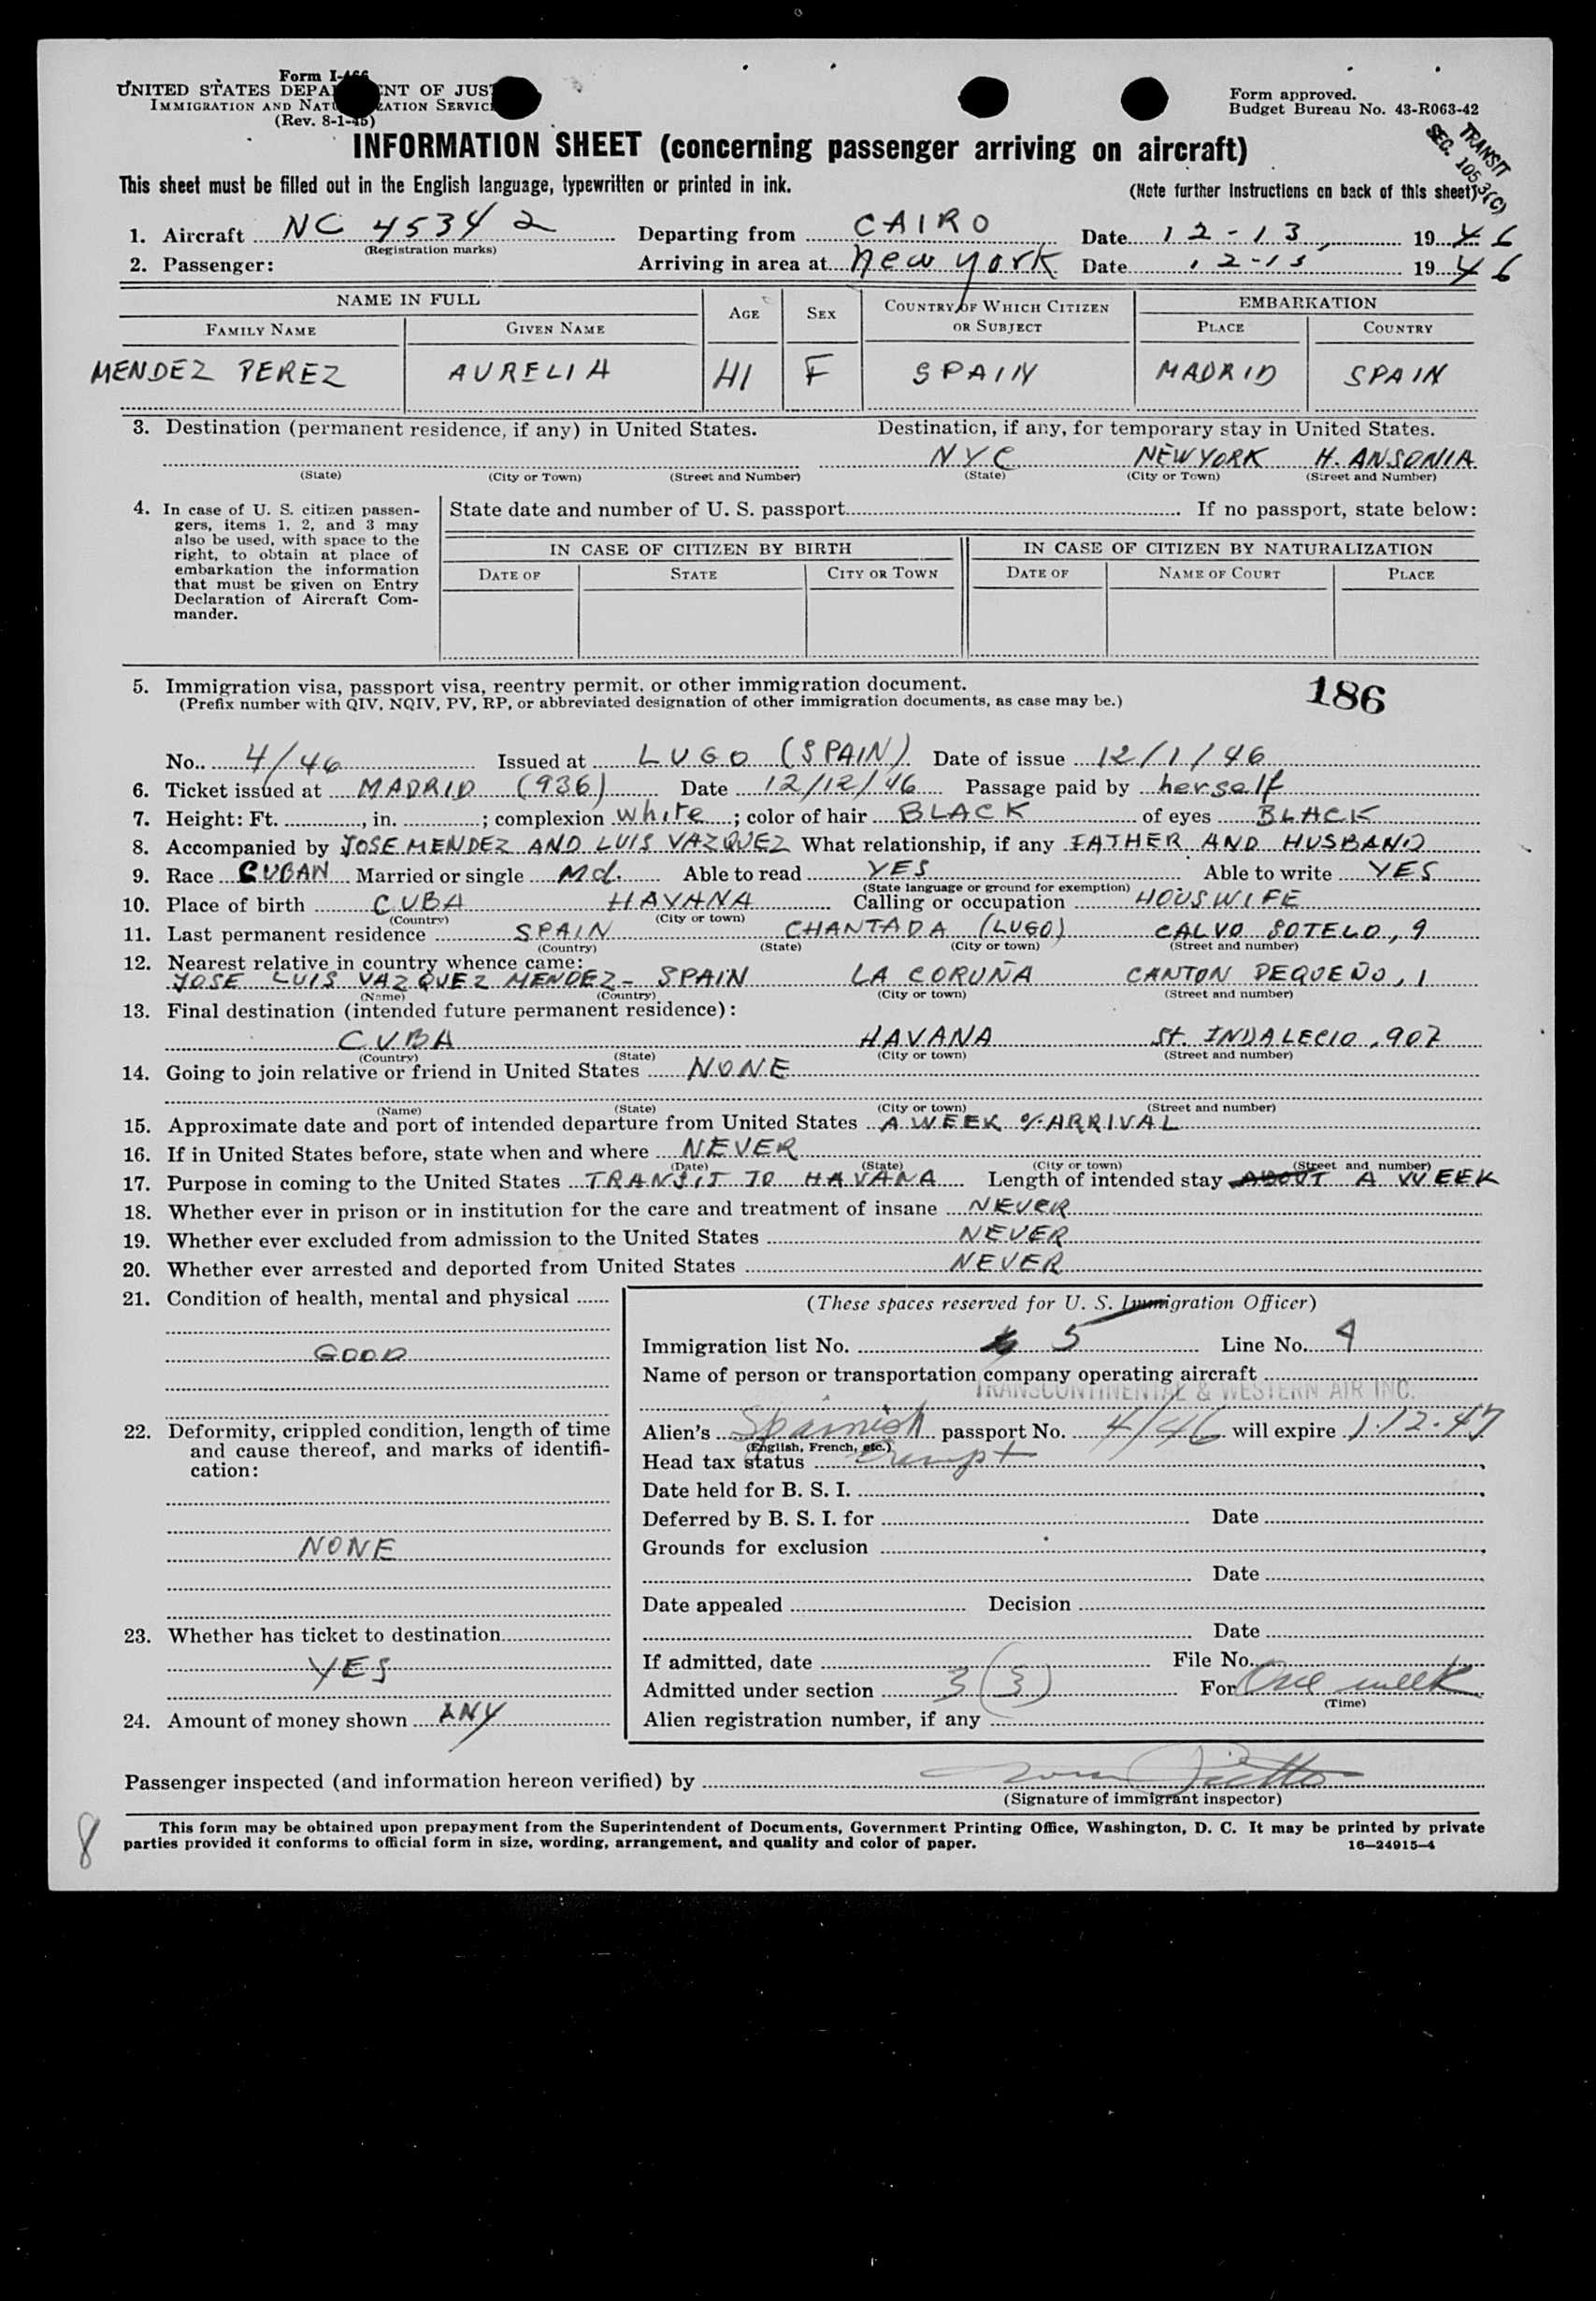 Form I-466
UNITED STATES DEPARTMENT OF JUSTICE
IMMIGRATION AND NATURALIZATION SERVICE
(Rev. 8-1-45)
Form approved.
Budget Bureau No. 43-R063-42
TRANSIT
SEC. 105.3(C)
INFORMATION SHEET (concerning passenger arriving on aircraft)
This sheet must be filled out in the English language, typewritten or printed in ink.
(Note further instructions on back of this sheet)
1. Aircraft NC 45342 Departing from CAIRO Date 12-13, 1946
(Registration marks)
2. Passenger: Arriving in area at New York Date 12-15 1946
NAME IN FULL AGE SEX COUNTRY OF WHICH CITIZEN OR SUBJECT EMBARKATION
FAMILY NAME GIVEN NAME PLACE COUNTRY
MENDEZ PEREZ AURELIA 41 F SPAIN MADRID SPAIN
3. Destination (permanent residence, if any) in United States. Destination, if any, for temporary stay in United States.
NYC NEW YORK H. ANSONIA
(State) (City or Town) (Street and Number) (State) (City or Town) (Street and Number)
4. In case of U. S. citizen passen-
gers, items 1, 2, and 3 may
also be used, with space to the
right, to obtain at place of
embarkation the information
that must be given on Entry
Declaration of Aircraft Com-
mander.
State date and number of U. S. passport. If no passport, state below:
IN CASE OF CITIZEN BY BIRTH IN CASE OF CITIZEN BY NATURALIZATION
DATE OF STATE CITY OR TOWN DATE OF NAME OF COURT PLACE
5. Immigration visa, passport visa, reentry permit, or other immigration document.
(Prefix number with QIV, NQIV, PV, RP, or abbreviated designation of other immigration documents, as case may be.)
186
No. 4/46 Issued at LUGO (SPAIN) Date of issue 12/1/46
6. Ticket issued at MADRID (936) Date 12/12/46 Passage paid by herself
7. Height: Ft. , in. ; complexion white; color of hair BLACK of eyes BLACK
8. Accompanied by JOSE MENDEZ AND LUIS VAZQUEZ What relationship, if any FATHER AND HUSBAND
9. Race CUBAN Married or single Md. Able to read YES Able to write YES
(State language or ground for exemption)
10. Place of birth CUBA HAVANA Calling or occupation HOUSWIFE
(Country) (City or town)
11. Last permanent residence SPAIN CHANTADA (LUGO) CALVO SOTELO, 9
(Country) (State) (City or town) (Street and number)
12. Nearest relative in country whence came:
JOSE LUIS VAZQUEZ MENDEZ - SPAIN LA CORUÑA CANTON PEQUEÑO, 1
(Name) (Country) (City or town) (Street and number)
13. Final destination (intended future permanent residence):
CUBA HAVANA St. INDALECIO, 907
(Country) (State) (City or town) (Street and number)
14. Going to join relative or friend in United States NONE
(Name) (State) (City or town) (Street and number)
15. Approximate date and port of intended departure from United States A WEEK o/ ARRIVAL
16. If in United States before, state when and where NEVER
(Date) (State) (City or town) (Street and number)
17. Purpose in coming to the United States TRANSIT TO HAVANA Length of intended stay ABOUT A WEEK
18. Whether ever in prison or in institution for the care and treatment of insane NEVER
19. Whether ever excluded from admission to the United States NEVER
20. Whether ever arrested and deported from United States NEVER
21. Condition of health, mental and physical
GOOD
22. Deformity, crippled condition, length of time
and cause thereof, and marks of identifi-
cation:
NONE
23. Whether has ticket to destination
YES
24. Amount of money shown ANY
(These spaces reserved for U. S. Immigration Officer)
Immigration list No. 5 Line No. 4
Name of person or transportation company operating aircraft
TRANSCONTINENTAL & WESTERN AIR INC.
Alien's Spanish passport No. 4/46 will expire 1-12-47
(English, French, etc.)
Head tax status Exempt
Date held for B. S. I.
Deferred by B. S. I. for Date
Grounds for exclusion
Date
Date appealed Decision
Date
If admitted, date File No.
Admitted under section 3(3) For One week
(Time)
Alien registration number, if any
Passenger inspected (and information hereon verified) by
(Signature of immigrant inspector)
8
This form may be obtained upon prepayment from the Superintendent of Documents, Government Printing Office, Washington, D. C. It may be printed by private
parties provided it conforms to official form in size, wording, arrangement, and quality and color of paper.
16—24915-4